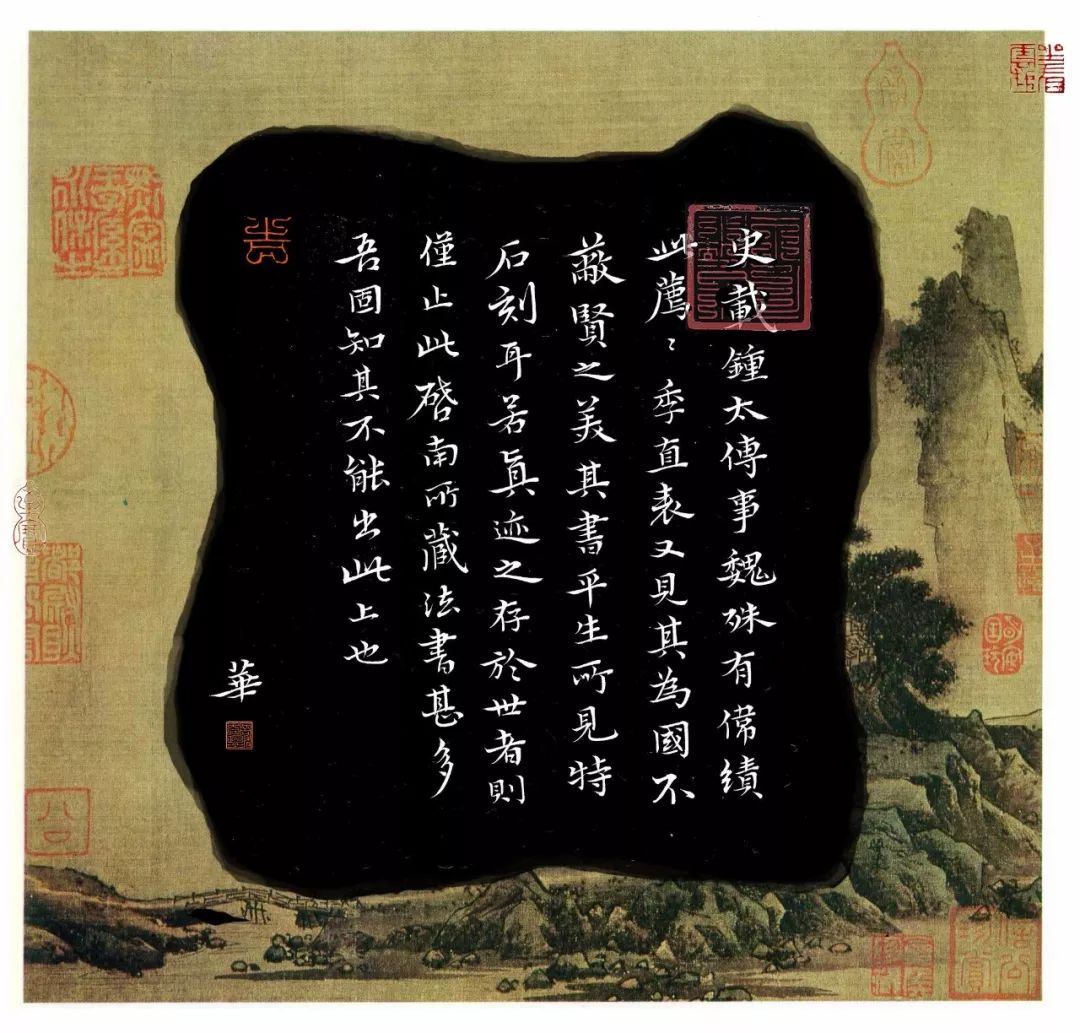 史載鍾太傅事魏殊有偉績
此薦〻季直表又見其為國不
蔽賢之美其書平生所見特
石刻耳若真迹之存於世者則
僅止此啓南所藏法書甚多
吾固知其不能出此上也
華